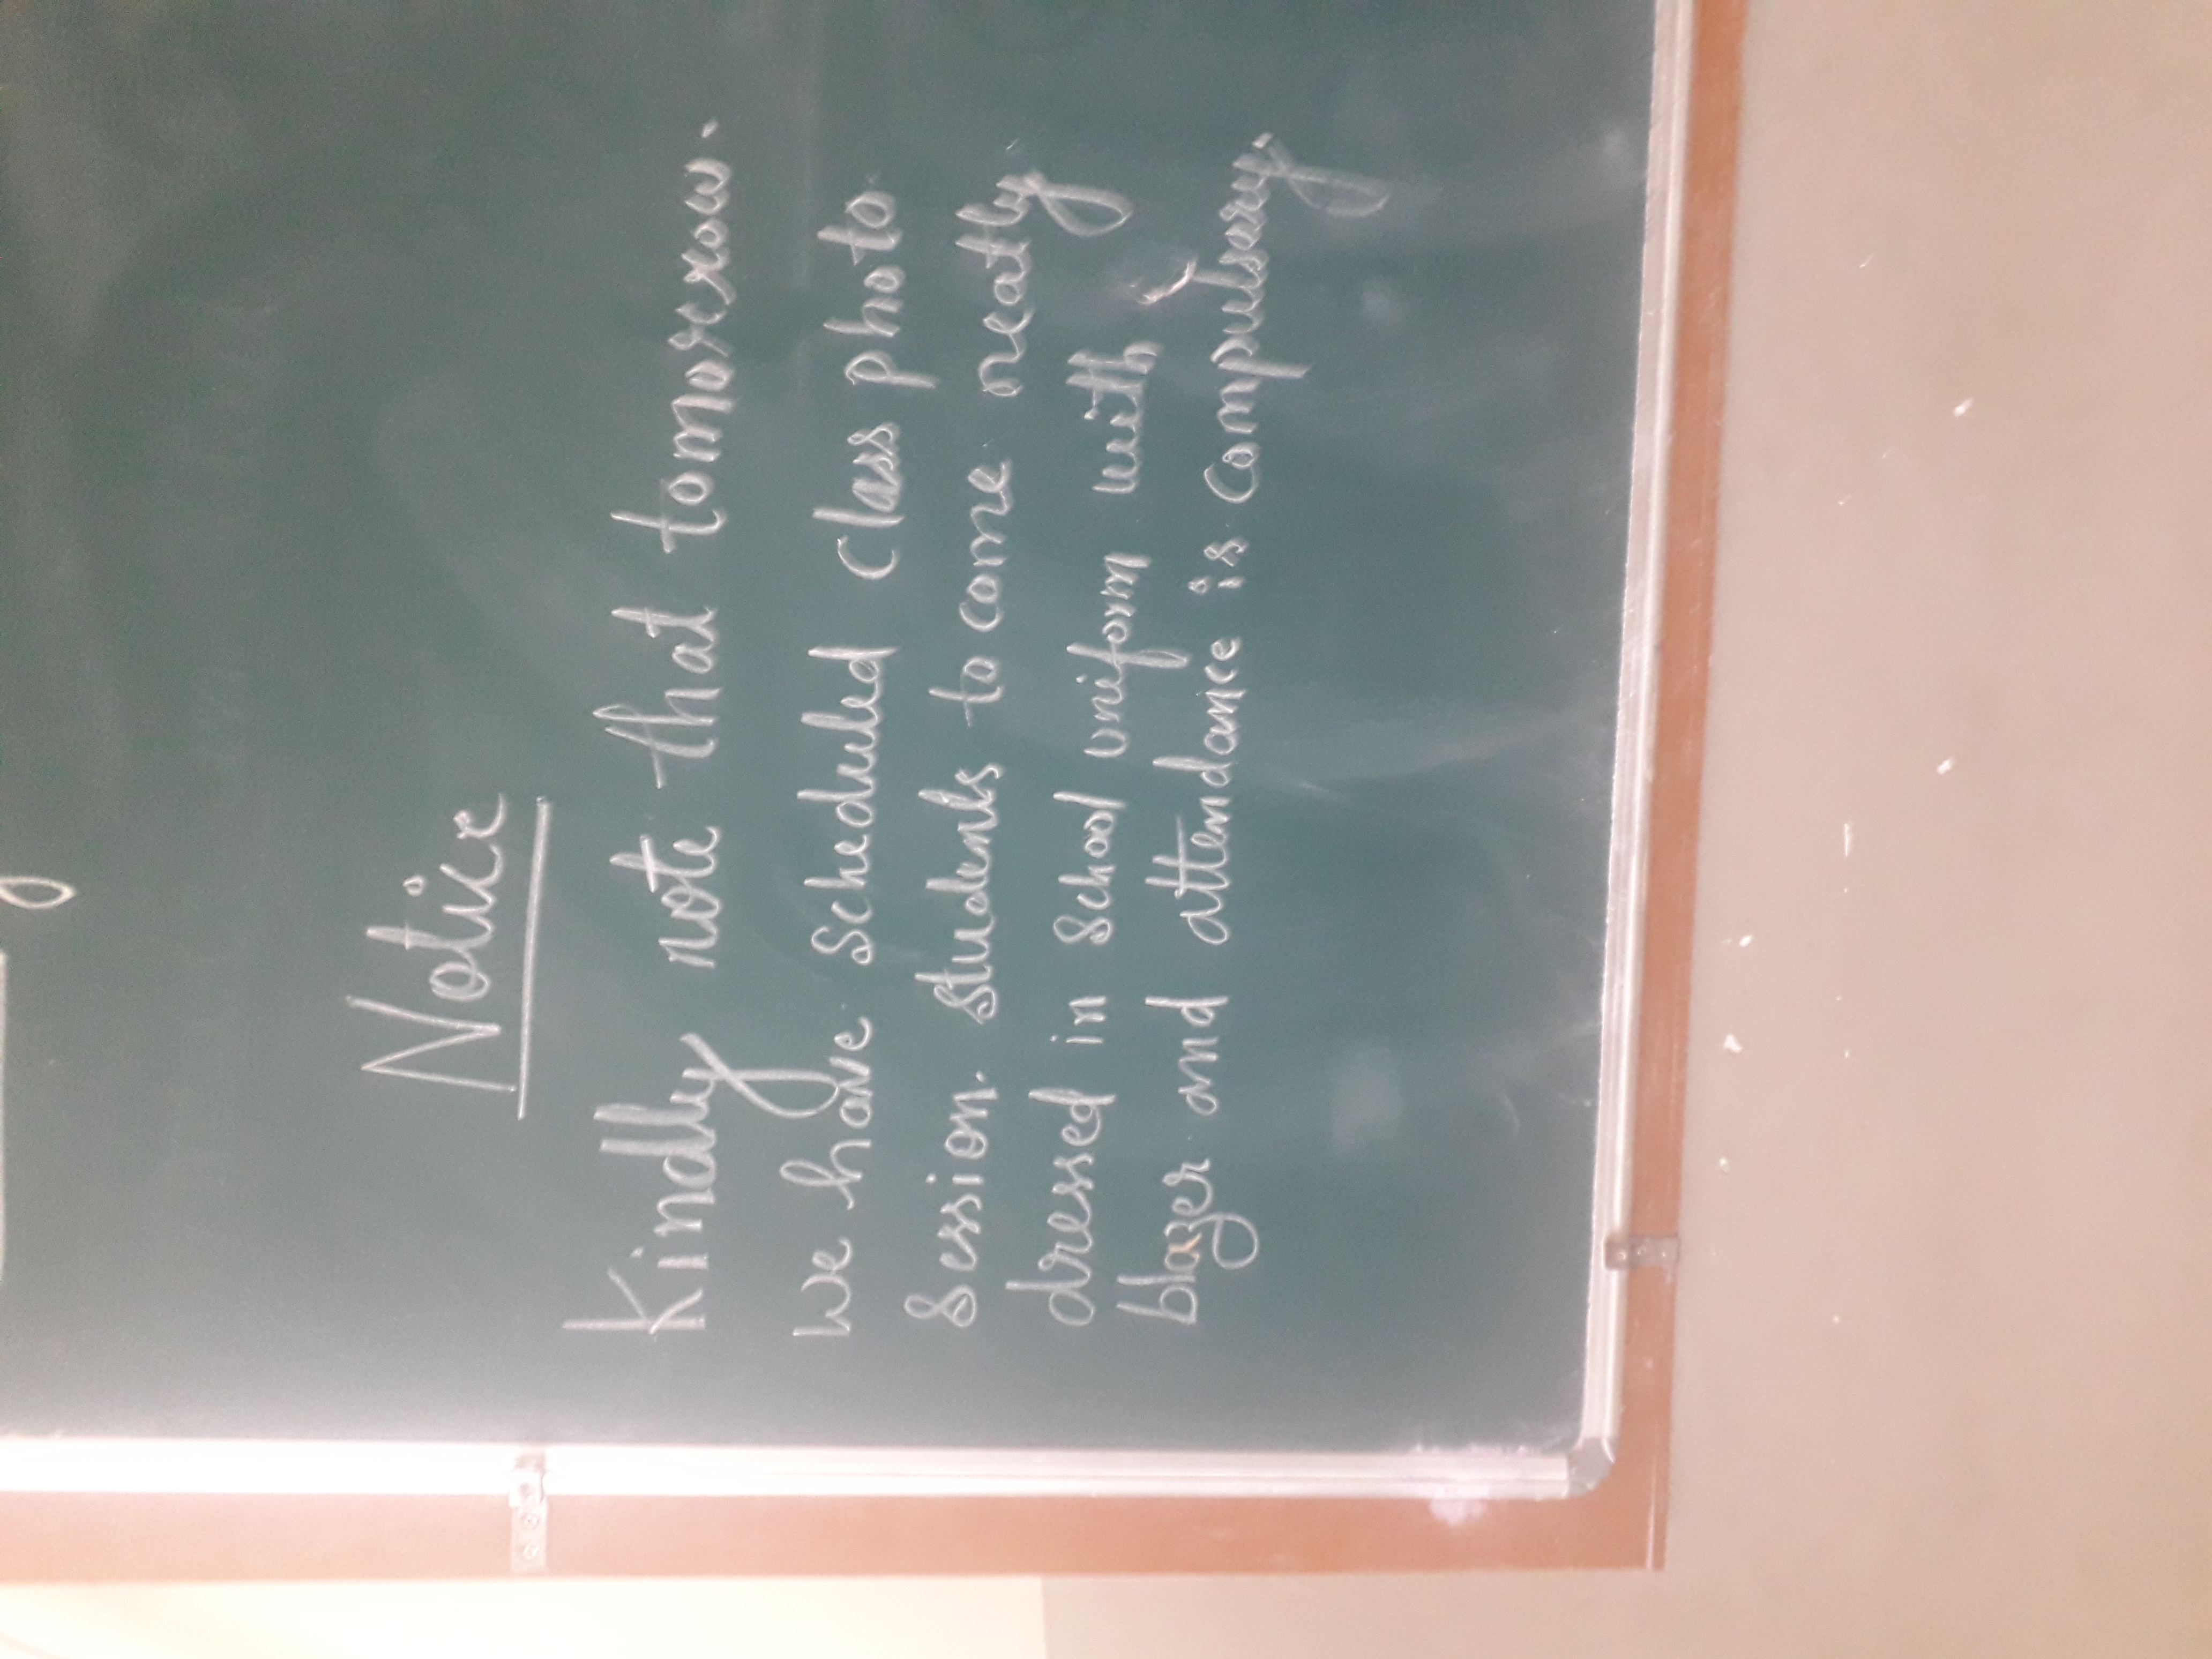 Notice
Kindly note that tomorrow.
we have scheduled class photo
session. students to come neatly
dressed in school uniform with
blazer and attendance is compulsary.